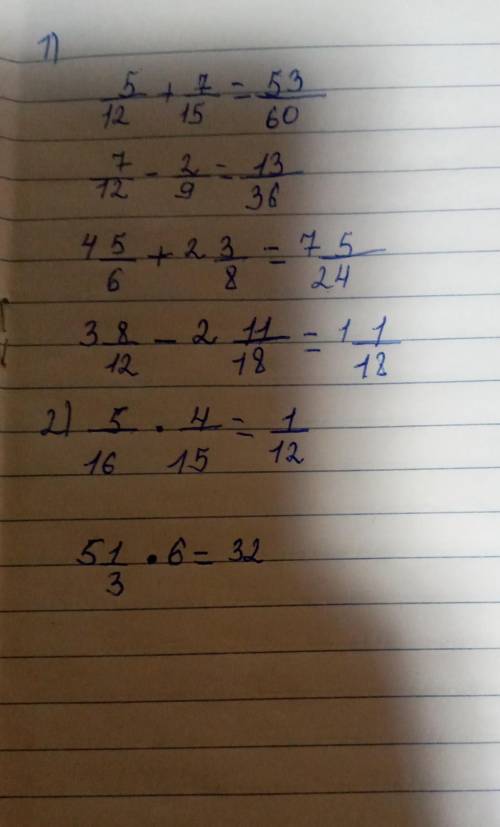 1)
5/12 + 7/15 = 53/60
7/12 - 2/9 = 13/36
4 5/6 + 2 3/8 = 7 5/24
3 8/12 - 2 11/18 = 1 1/18
2) 5/16 · 4/15 = 1/12
5 1/3 · 6 = 32